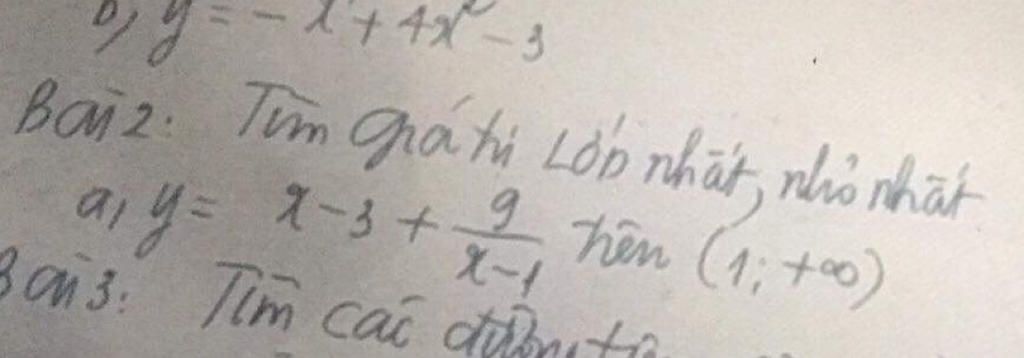 b, y = - x + 4x² - 3
Bài 2: Tìm giá trị Lớn nhất, nhỏ nhất
a, y = x - 3 + \frac{9}{x-1} trên (1; +∞)
Bài 3: Tìm các đường